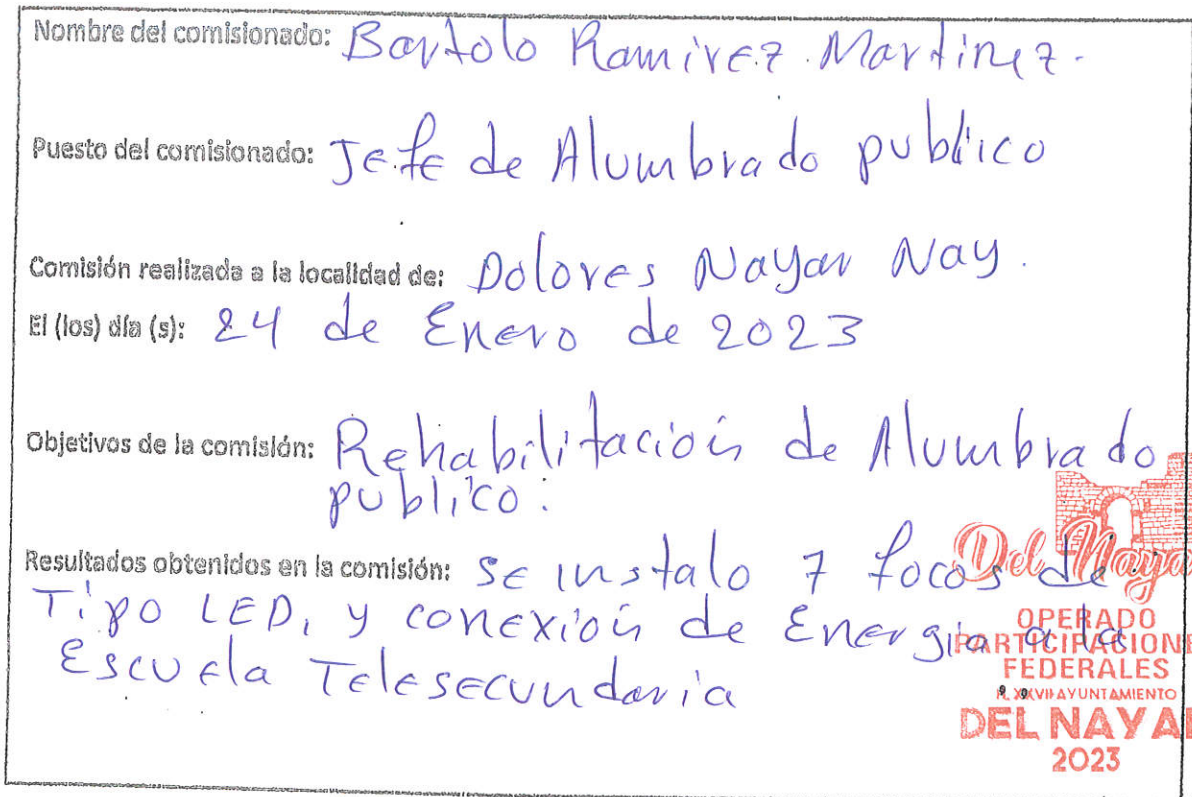 Nombre del comisionado: Bartolo Ramirez Martinez.
Puesto del comisionado: Jefe de Alumbrado publico
Comisión realizada a la localidad de: Dolores Nayar Nay.
El (los) día (s): 24 de Enero de 2023
Objetivos de la comisión: Rehabilitación de Alumbrado
publico.
Resultados obtenidos en la comisión: Se instalo 7 focos de
Tipo LED, y conexión de Energia a la
Escuela Telesecundaria
Del Nayar
OPERADO
PARTICIPACIONE
FEDERALES
H. XXVII AYUNTAMIENTO
DEL NAYAR
2023